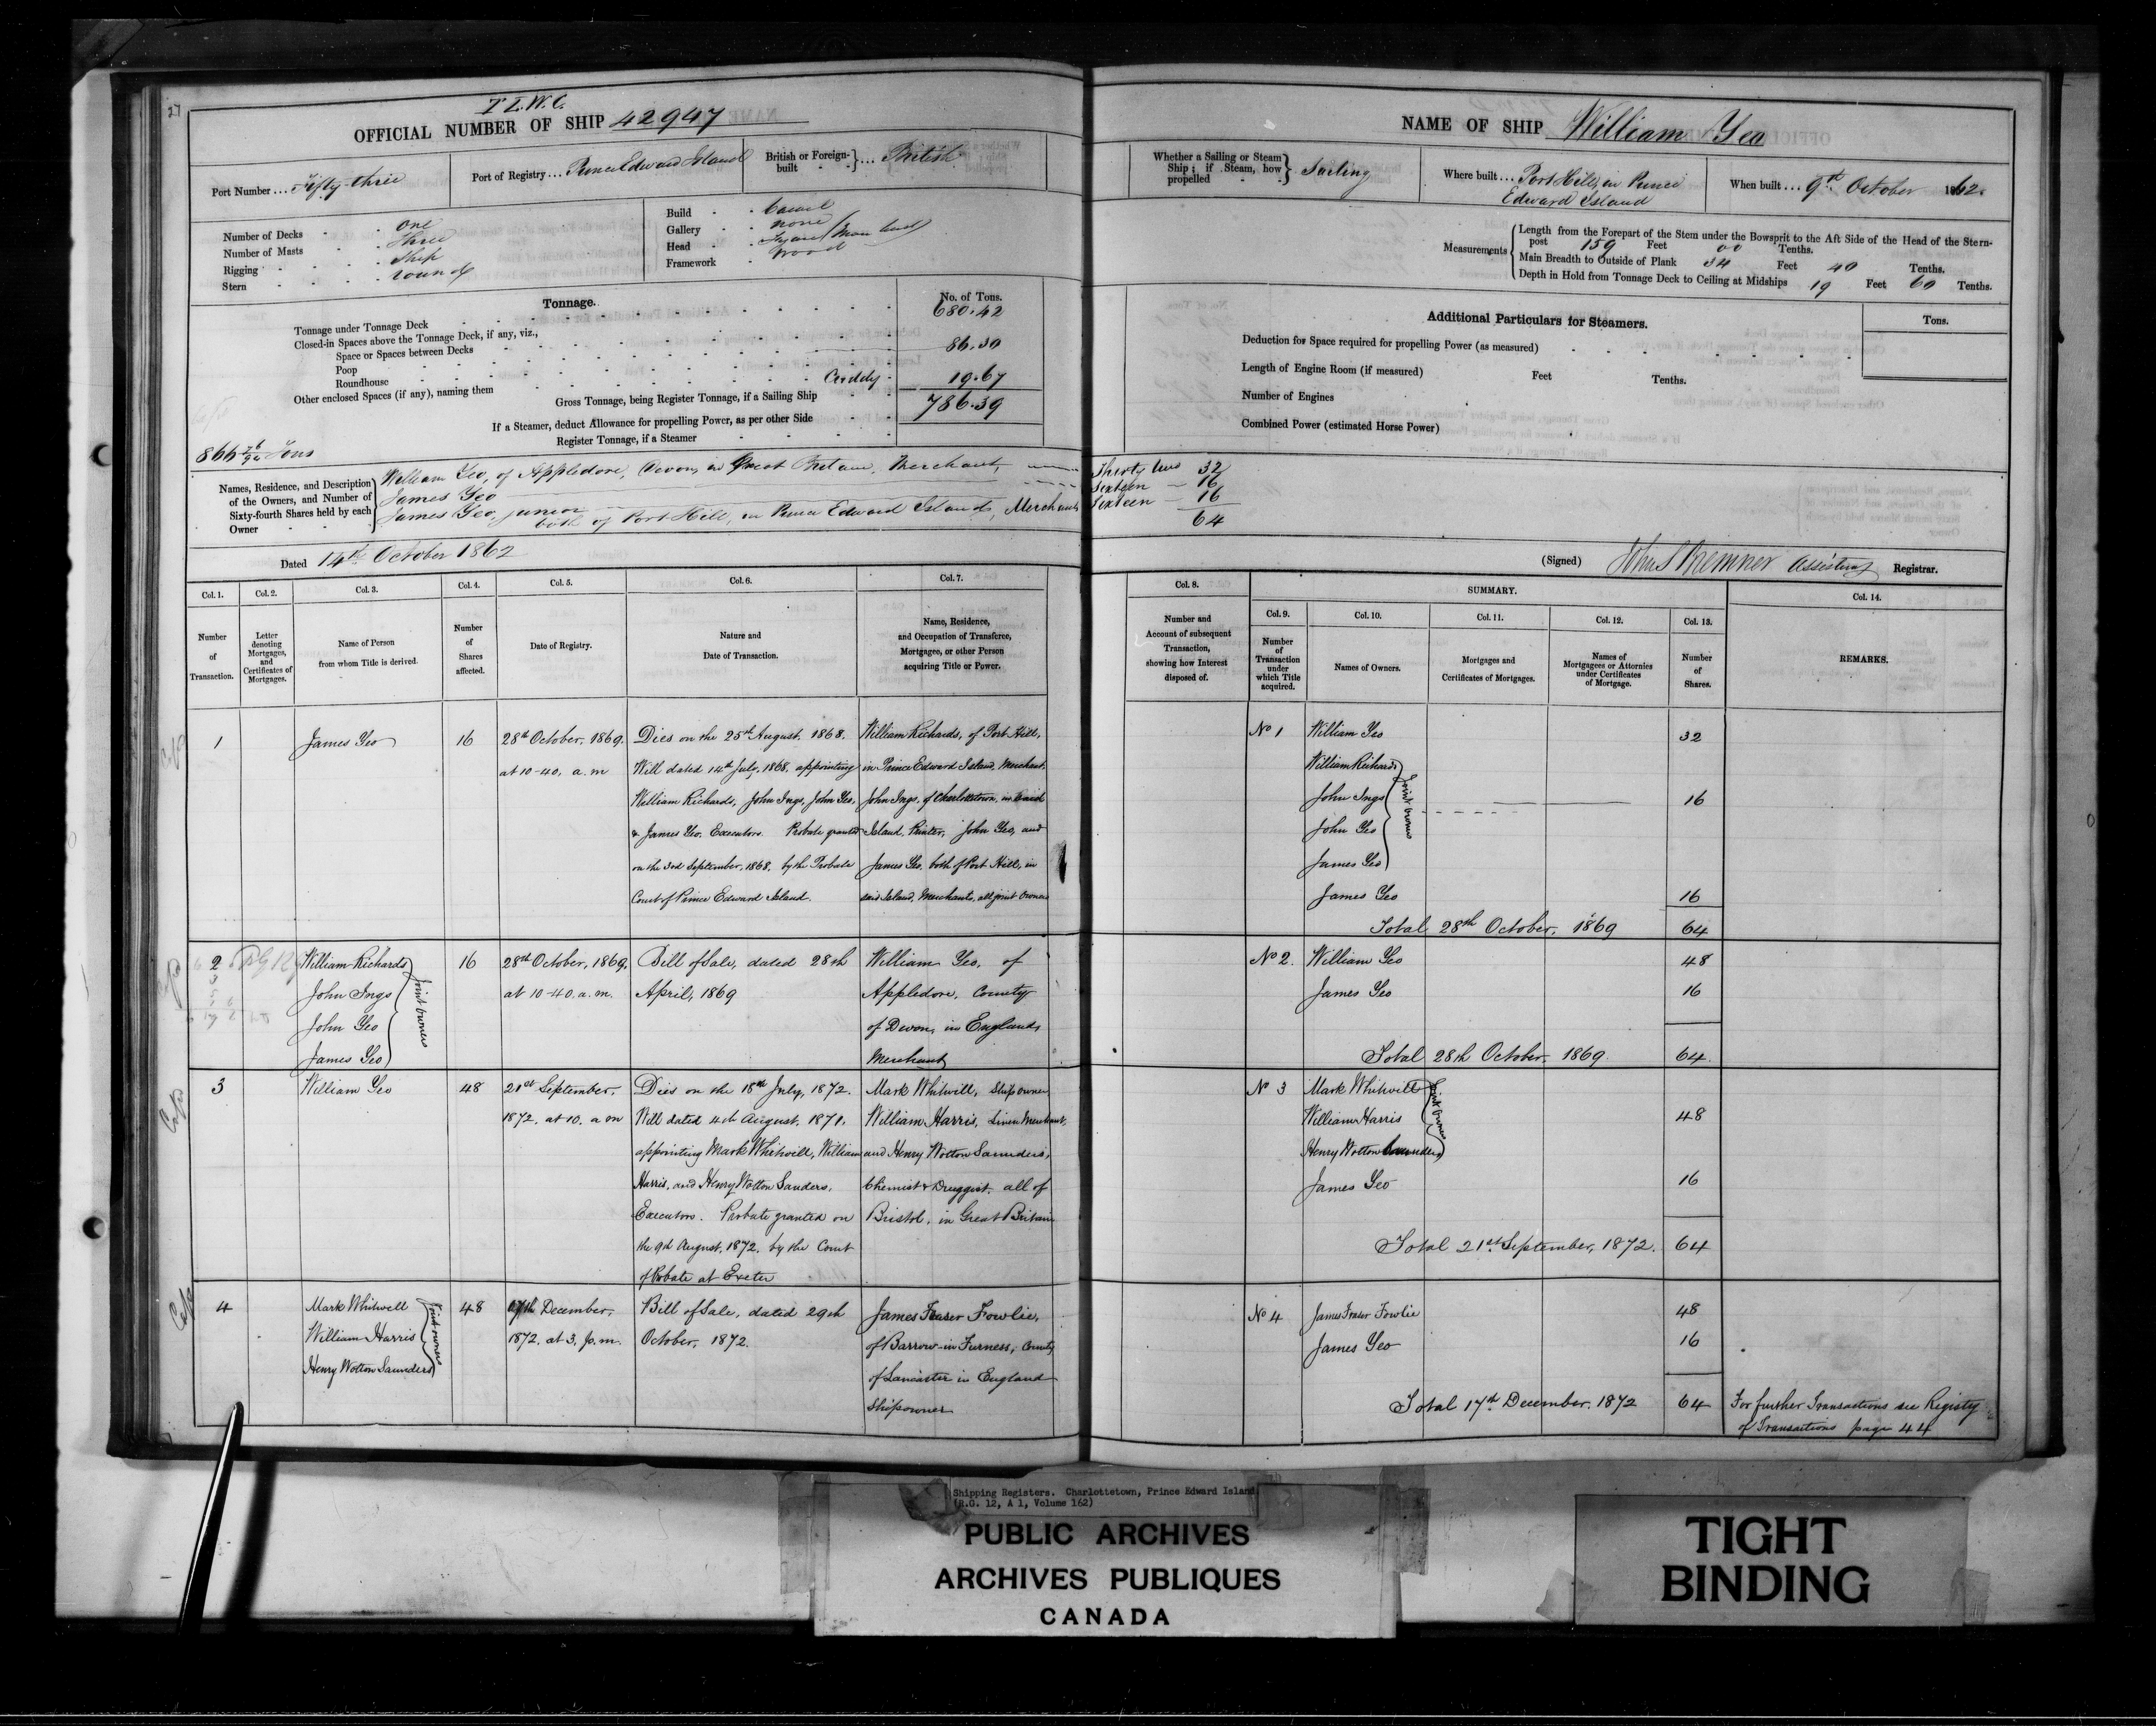 27
T L. W. C.
OFFICIAL NUMBER OF SHIP 42947
Port Number ... Fifty-three
Port of Registry ... Prince Edward Island
British or Foreign-built ... British
Number of Decks one
Number of Masts three
Rigging Ship
Stern round
Build Carvel
Gallery none
Head
Framework wood
Tonnage.
No. of Tons.
Tonnage under Tonnage Deck 680.42
Closed-in Spaces above the Tonnage Deck, if any, viz.,
Space or Spaces between Decks
Poop 86.30
Roundhouse
Other enclosed Spaces (if any), naming them Cuddy 19.67
Gross Tonnage, being Register Tonnage, if a Sailing Ship 786.39
If a Steamer, deduct Allowance for propelling Power, as per other Side
Register Tonnage, if a Steamer
Tons
Names, Residence, and Description of the Owners, and Number of Sixty-fourth Shares held by each Owner
William Yeo, of Appledore, Devon, in Great Britain, Merchant,
James Yeo
James Yeo, junior
both of Port Hill, in Prince Edward Island, Merchants
Dated 14th October 1862
NAME OF SHIP William Yeo
Whether a Sailing or Steam Ship; if Steam, how propelled Sailing
Where built ... Port Hill, in Prince
Edward Island
When built ... 9th October 1862.
Measurements
Length from the Forepart of the Stem under the Bowsprit to the Aft Side of the Head of the Stern-
post 159 Feet 00 Tenths.
Main Breadth to Outside of Plank 34 Feet 40 Tenths.
Depth in Hold from Tonnage Deck to Ceiling at Midships 19 Feet 60 Tenths.
Additional Particulars for Steamers.
Tons.
Deduction for Space required for propelling Power (as measured)
Length of Engine Room (if measured) Feet Tenths.
Number of Engines
Combined Power (estimated Horse Power)
Thirty two 32
Sixteen 16
Sixteen 16
64
(Signed) John S Bremner Assistant Registrar.
Col. 1. Col. 2. Col. 3. Col. 4. Col. 5. Col. 6. Col. 7.
Number of Transaction.
Letter denoting Mortgages, and Certificates of Mortgages.
Name of Person from whom Title is derived.
Number of Shares affected.
Date of Registry.
Nature and Date of Transaction.
Name, Residence, and Occupation of Transferee, Mortgagee, or other Person acquiring Title or Power.
Col. 8.
Number and Account of subsequent Transaction, showing how Interest disposed of.
SUMMARY.
Col. 9. Col. 10. Col. 11. Col. 12. Col. 13. Col. 14.
Number of Transaction under which Title acquired.
Names of Owners.
Mortgages and Certificates of Mortgages.
Names of Mortgagees or Attornies under Certificates of Mortgage.
Number of Shares.
REMARKS.
1
James Yeo
16
28th October, 1869.
at 10-40, a.m
Dies on the 25th August, 1868.
Will dated 14th July, 1868, appointing
William Richards, John Ings, John Yeo,
& James Yeo, Executors. Probate granted
on the 3rd September, 1868, by the Probate
Court of Prince Edward Island.
William Richards, of Port Hill,
in Prince Edward Island, Merchant.
John Ings, of Charlottetown, in said
Island, Printer, John Yeo, and
James Yeo, both of Port Hill, in
said Island, Merchants, all joint owners
No 1
William Yeo 32
William Richards
John Ings
John Yeo
James Yeo
Joint owners
16
James Yeo 16
Total 28th October, 1869 64
2
William Richards
John Ings
John Yeo
James Yeo
Joint owners
16
28th October, 1869.
at 10-40. a.m.
Bill of Sale, dated 28th
April, 1869
William Yeo, of
Appledore, County
of Devon, in England,
Merchant
No 2.
William Yeo 48
James Yeo 16
Total 28th October, 1869 64.
3
William Yeo
48
21st September,
1872, at 10. a m
Dies on the 18th July, 1872.
Will dated 4th August, 1871,
appointing Mark Whitwill, William
Harris, and Henry Wotton Sanders,
Executors. Probate granted on
the 9th August, 1872, by the Court
of Probate at Exeter
Mark Whitwill, Ship owner
William Harris, Linen Merchant,
and Henry Wotton Saunders,
Chemist & Druggist, all of
Bristol, in Great Britain
No 3
Mark Whitwill
William Harris
Henry Wotton Saunders
Joint owners
48
James Yeo 16
Total 21st September, 1872. 64
4
Mark Whitwell
William Harris
Henry Wotton Saunders
Joint owners
48
17th December,
1872, at 3, p.m.
Bill of Sale, dated 29th
October, 1872.
James Fraser Fowlie,
of Barrow-in Furness, County
of Lancaster in England
Shipowner
No 4
James Fraser Fowlie 48
James Yeo 16
Total 17th December, 1872 64
For further Transactions see Registry
of Transactions page 44
Shipping Registers. Charlottetown, Prince Edward Island
(R.G. 12, A 1, Volume 162)
PUBLIC ARCHIVES
ARCHIVES PUBLIQUES
CANADA
TIGHT
BINDING